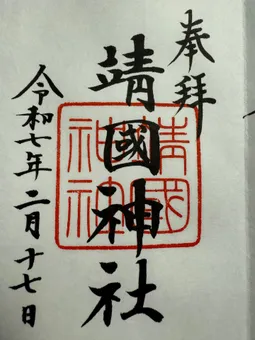 奉拝
靖國神社
靖國神社
令和七年二月十七日